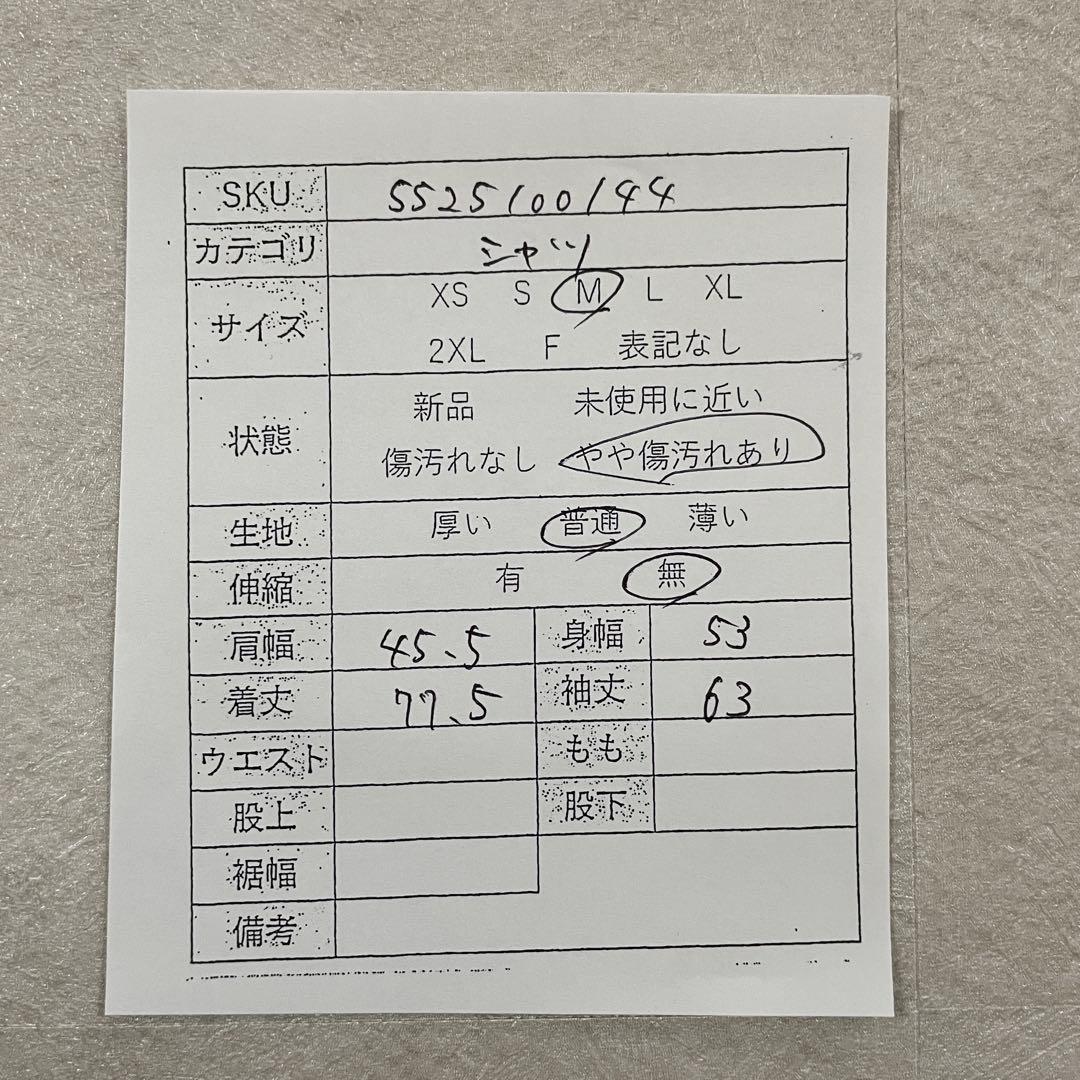 SKU 5525100144
カテゴリ シャツ
サイズ XS S M L XL
2XL F 表記なし
状態 新品 未使用に近い
傷汚れなし やや傷汚れあり
生地 厚い 普通 薄い
伸縮 有 無
肩幅 45.5 身幅 53
着丈 77.5 袖丈 63
ウエスト もも
股上 股下
裾幅
備考